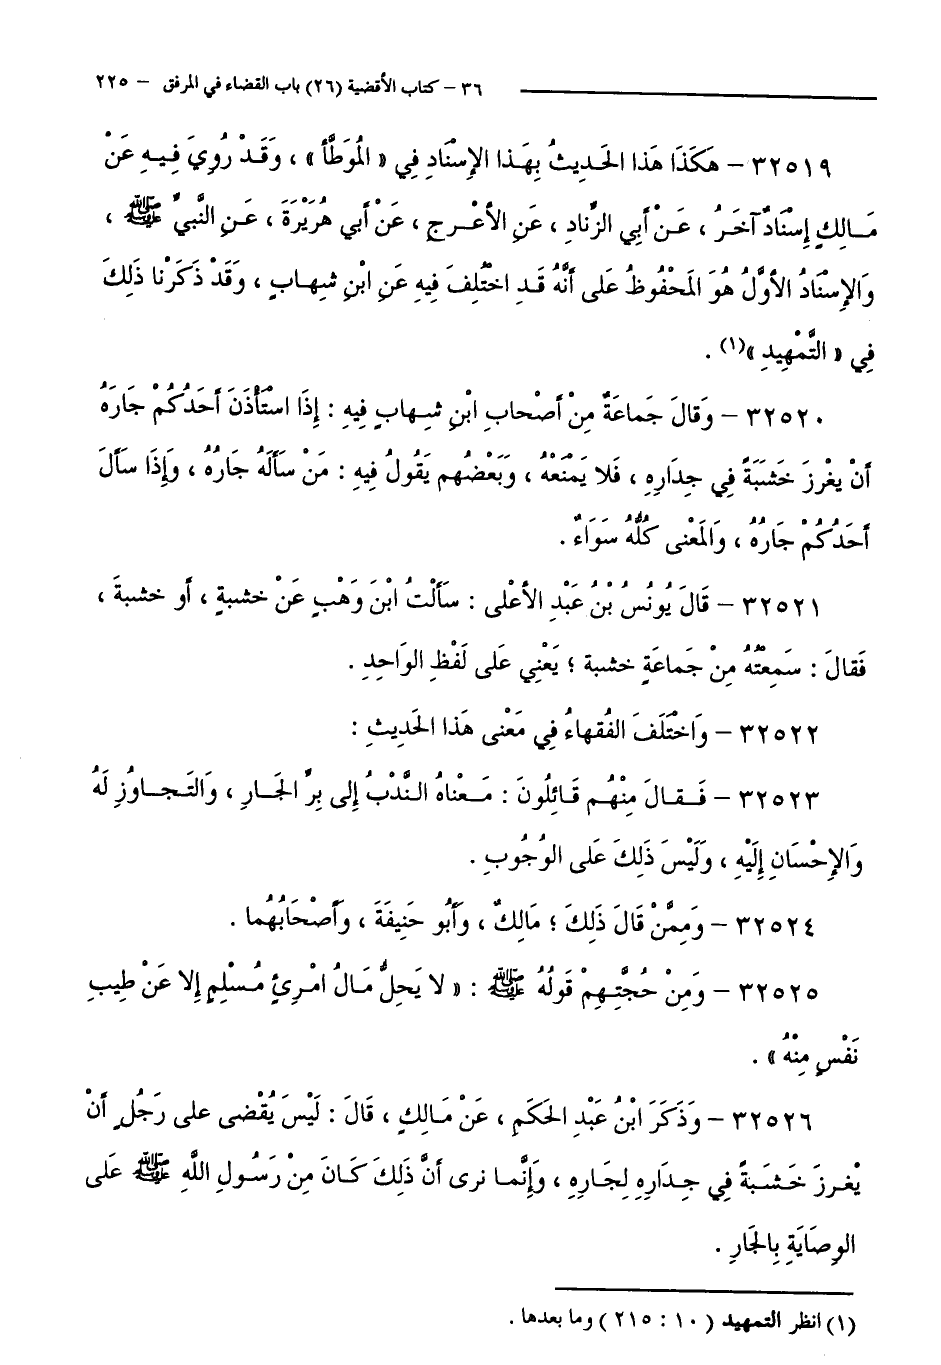 ٣٦ – كتاب الأقضية (٢٦) باب القضاء في المرفق – ٢٢٥
٣٢٥١٩ – هَكَذَا هَذا الحَديثُ بِهَذا الإِسْنَادِ فِي « المُوَطَّأ » ، وَقَدْ رُوِيَ فِيهِ عَنْ
مَالِكٍ إِسْنَادٌ آخَرُ ، عَنْ أَبِي الزِّنادِ ، عَنِ الأَعْرجِ ، عَنْ أَبي هُرَيْرَةَ ، عَنِ النَّبيِّ ﷺ ،
وَالإِسْنَادُ الأَوَّلُ هُوَ المَحْفُوظُ عَلى أَنَّهُ قَدِ اخْتُلِفَ فِيهِ عَنِ ابْنِ شِهابٍ ، وَقَدْ ذَكَرْنا ذَلِكَ
فِي « التَّمْهِيدِ »(١) .
٣٢٥٢٠ – وَقَالَ جَماعَةٌ مِنْ أَصْحابِ ابْنِ شِهابٍ فِيهِ : إِذَا اسْتَأْذَنَ أَحَدُكُمْ جَارَهُ
أَنْ يَغْرِزَ خَشَبَةً فِي جِدَارِهِ ، فَلا يَمْنَعْهُ ، وَبَعْضُهم يَقُولُ فِيهِ : مَنْ سَأَلَهُ جَارُهُ ، وَإِذَا سَأَلَ
أَحَدُكُمْ جَارَهُ ، وَالمَعْنى كُلُّهُ سَوَاءٌ .
٣٢٥٢١ – قَالَ يُونُسُ بْنُ عَبْدِ الأَعْلى : سَأَلْتُ ابْنَ وَهْبٍ عَنْ خشبةٍ ، أَو خشبةَ ،
فَقالَ : سَمِعْتُهُ مِنْ جَماعَةٍ خشبة ؛ يَعْنِي عَلى لَفْظِ الوَاحِدِ .
٣٢٥٢٢ – وَاخْتَلَفَ الفُقهاءُ فِي مَعْنى هَذا الحَديثِ :
٣٢٥٢٣ – فَقالَ مِنْهُم قَائِلُونَ : مَعْناهُ النَّدْبُ إِلى بِرِّ الجَارِ ، وَالتَّجاوُزِ لَهُ
وَالإِحْسَانِ إِلَيْهِ ، وَلَيْسَ ذَلِكَ عَلى الوُجُوبِ .
٣٢٥٢٤ – وَمِمَّنْ قَالَ ذَلِكَ ؛ مَالِكٌ ، وَأَبُو حَنِيفَةَ ، وَأَصْحَابُهُما .
٣٢٥٢٥ – وَمِنْ حُجَّتِهِمْ قَولُهُ ﷺ : « لا يَحِلُّ مَالُ امْرِئٍ مُسْلِمٍ إِلا عَنْ طِيبِ
نَفْسٍ مِنْهُ » .
٣٢٥٢٦ – وَذَكَرَ ابْنُ عَبْدِ الحَكَمِ ، عَنْ مَالِكٍ ، قَالَ : لَيْسَ يُقْضى عَلى رَجُلٍ أَنْ
يَغْرِزَ خَشَبَةً فِي جِدَارِهِ لِجَارِهِ ، وَإِنَّما نرى أَنَّ ذَلِكَ كَانَ مِنْ رَسُولِ اللَّهِ ﷺ عَلى
الوِصَايَةِ بِالجَارِ .
(١) انظر التمهيد ( ١٠ : ٢١٥ ) وما بعدها .